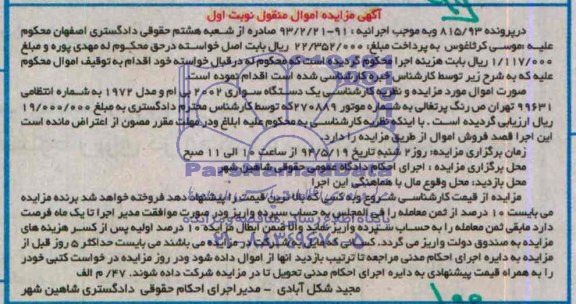 آگهی مزایده اموال منقول نوبت اول
درپرونده ۸۱۵/۹۳ وبه موجب اجرائیه : ۹۱-۹۳/۲/۲۱ صادره از شعبه هشتم حقوقی دادگستری اصفهان محکوم
علیه موسی کرتاغوس به پرداخت مبلغ: ۲۲/۳۵۲/۰۰۰ ریال بابت اصل خواسته درحق محکوم له مهدی پوره و مبلغ
۱/۱۱۷/۰۰۰ ریال بابت هزینه اجرا محکوم گردیده است که محکوم له در قبال خواسته خود اقدام به توقیف اموال محکوم
علیه که به شرح زیر توسط کارشناس خبره کارشناسی شده است اقدام نموده است
صورت اموال مورد مزایده و نظریه کارشناسی یک دستگاه سواری ۲۰۰۲ بی ام و مدل ۱۹۷۲ به شماره انتظامی
۹۹۶۳۱ تهران ص رنگ پرتغالی به شماره موتور ۲۷۰۸۸۹ که توسط کارشناس محترم دادگستری به مبلغ ۱۹/۰۰۰/۰۰۰
ریال ارزیابی گردیده است . با اینکه نظریه کارشناسی به محکوم علیه ابلاغ ودر مهلت مقرر مصون از اعتراض مانده است
این اجرا قصد فروش اموال از طریق مزایده را دارد.
زمان برگزاری مزایده: روز ۲ شنبه تاریخ ۹۴/۵/۱۹ از ساعت ۱۰ الی ۱۱ صبح
محل برگزاری مزایده : اجرای احکام دادگاه عمومی حقوقی شاهین شهر
محل بازدید: محل وقوع مال با هماهنگی این اجرا
مزایده از قیمت کارشناسی شروع وبه کسی که بالاترین قیمت را پیشنهاد دهد فروخته خواهد شد برنده مزایده
می بایست ۱۰ درصد از ثمن معامله را فی المجلس به حساب سپرده واریز ودر صورت موافقت مدیر اجرا تا یک ماه فرصت
دارد مابقی ثمن معامله را به حساب سپرده واریز نماید والا ضمن ابطال مزایده ۱۰ درصد اولیه پس از کسر هزینه های
مزایده به صندوق دولت واریز می گردد. کسانی که مایل به شرکت در مزایده می باشند می بایست حداکثر ۵ روز قبل از
مزایده به دایره اجرای احکام مدنی مراجعه تا ترتیب بازدید انها از اموال داده شود ودر روز مزایده در خواست کتبی خودر
را به همراه قیمت پیشنهادی به دایره اجرای احکام مدنی تحویل تا در مزایده شرکت داده شوند. ۴۴۷/ م الف
مجید شکل آبادی - مدیراجرای احکام حقوقی دادگستری شاهین شهر